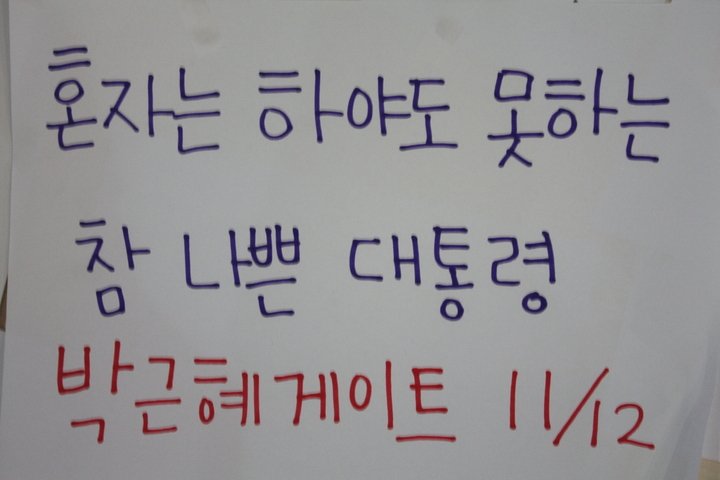 혼자는 하야도 못하는
참 나쁜 대통령
박근혜게이트 11/12